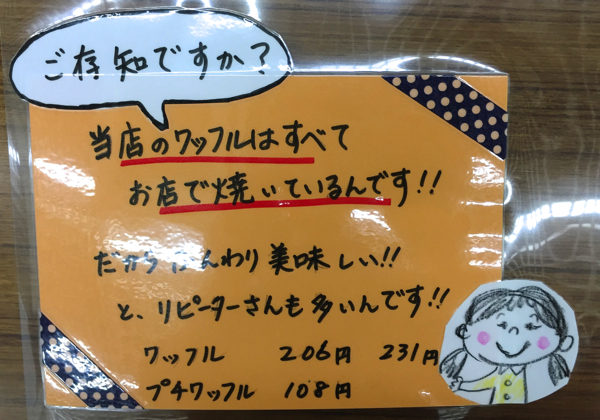 ご存知ですか?
当店のワッフルはすべて
お店で焼いているんです!!
だから ふんわり 美味しい!!
と、リピーターさんも多いんです!!
ワッフル 206円 231円
プチワッフル 108円